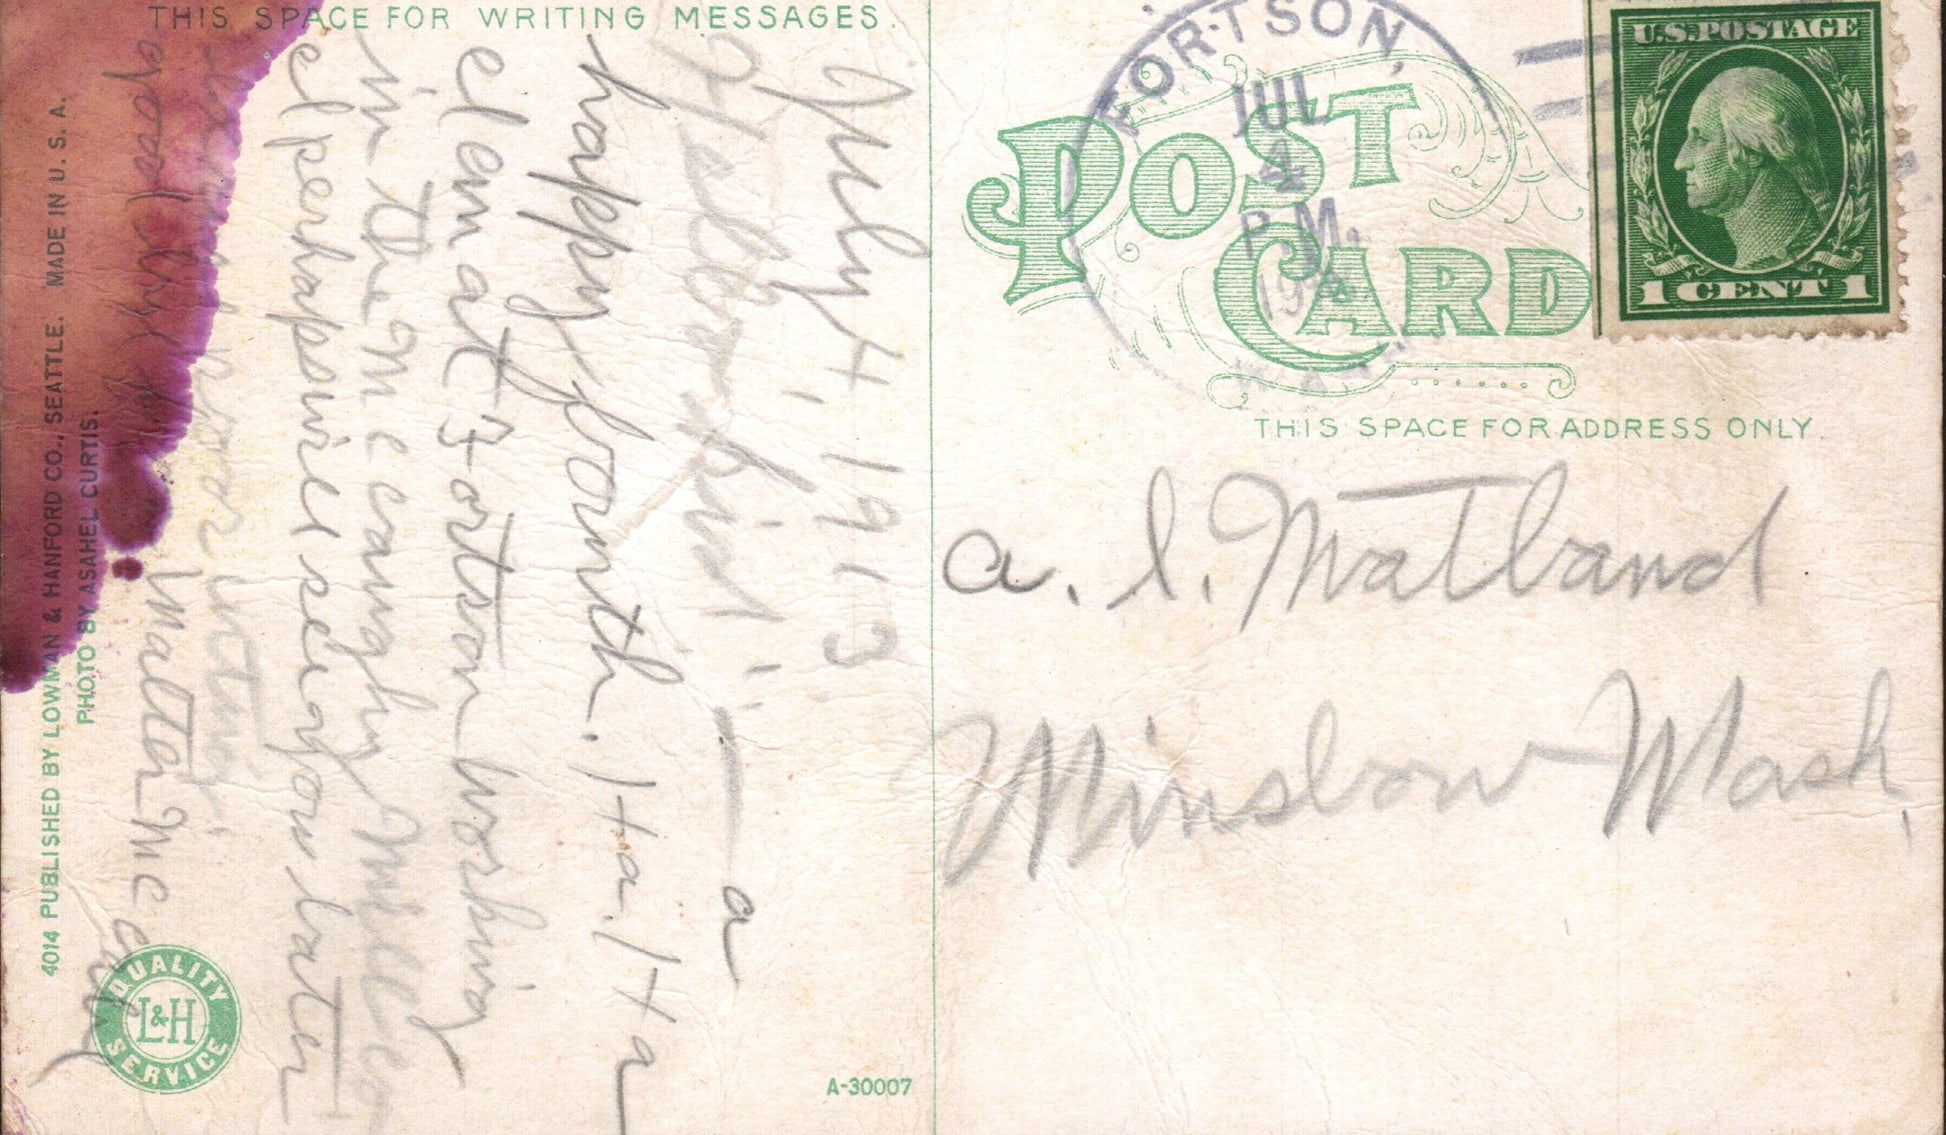 THIS SPACE FOR WRITING MESSAGES.
July 4, 1913
Hello kid!! — a
happy fourth. Ha. Ha
I am at Fortson working
in the McCaughy Mill
I perhaps will see you later
poor
good
Walter McCaughy
4014 PUBLISHED BY LOWMAN & HANFORD CO., SEATTLE. MADE IN U. S. A.
PHOTO BY ASAHEL CURTIS.
QUALITY
L&H
SERVICE
A-30007
FORTSON,
JUL
4
P.M.
WASH.
POST
CARD
U.S. POSTAGE
1 CENT 1
THIS SPACE FOR ADDRESS ONLY.
A. L. Matland
Winslow Wash,